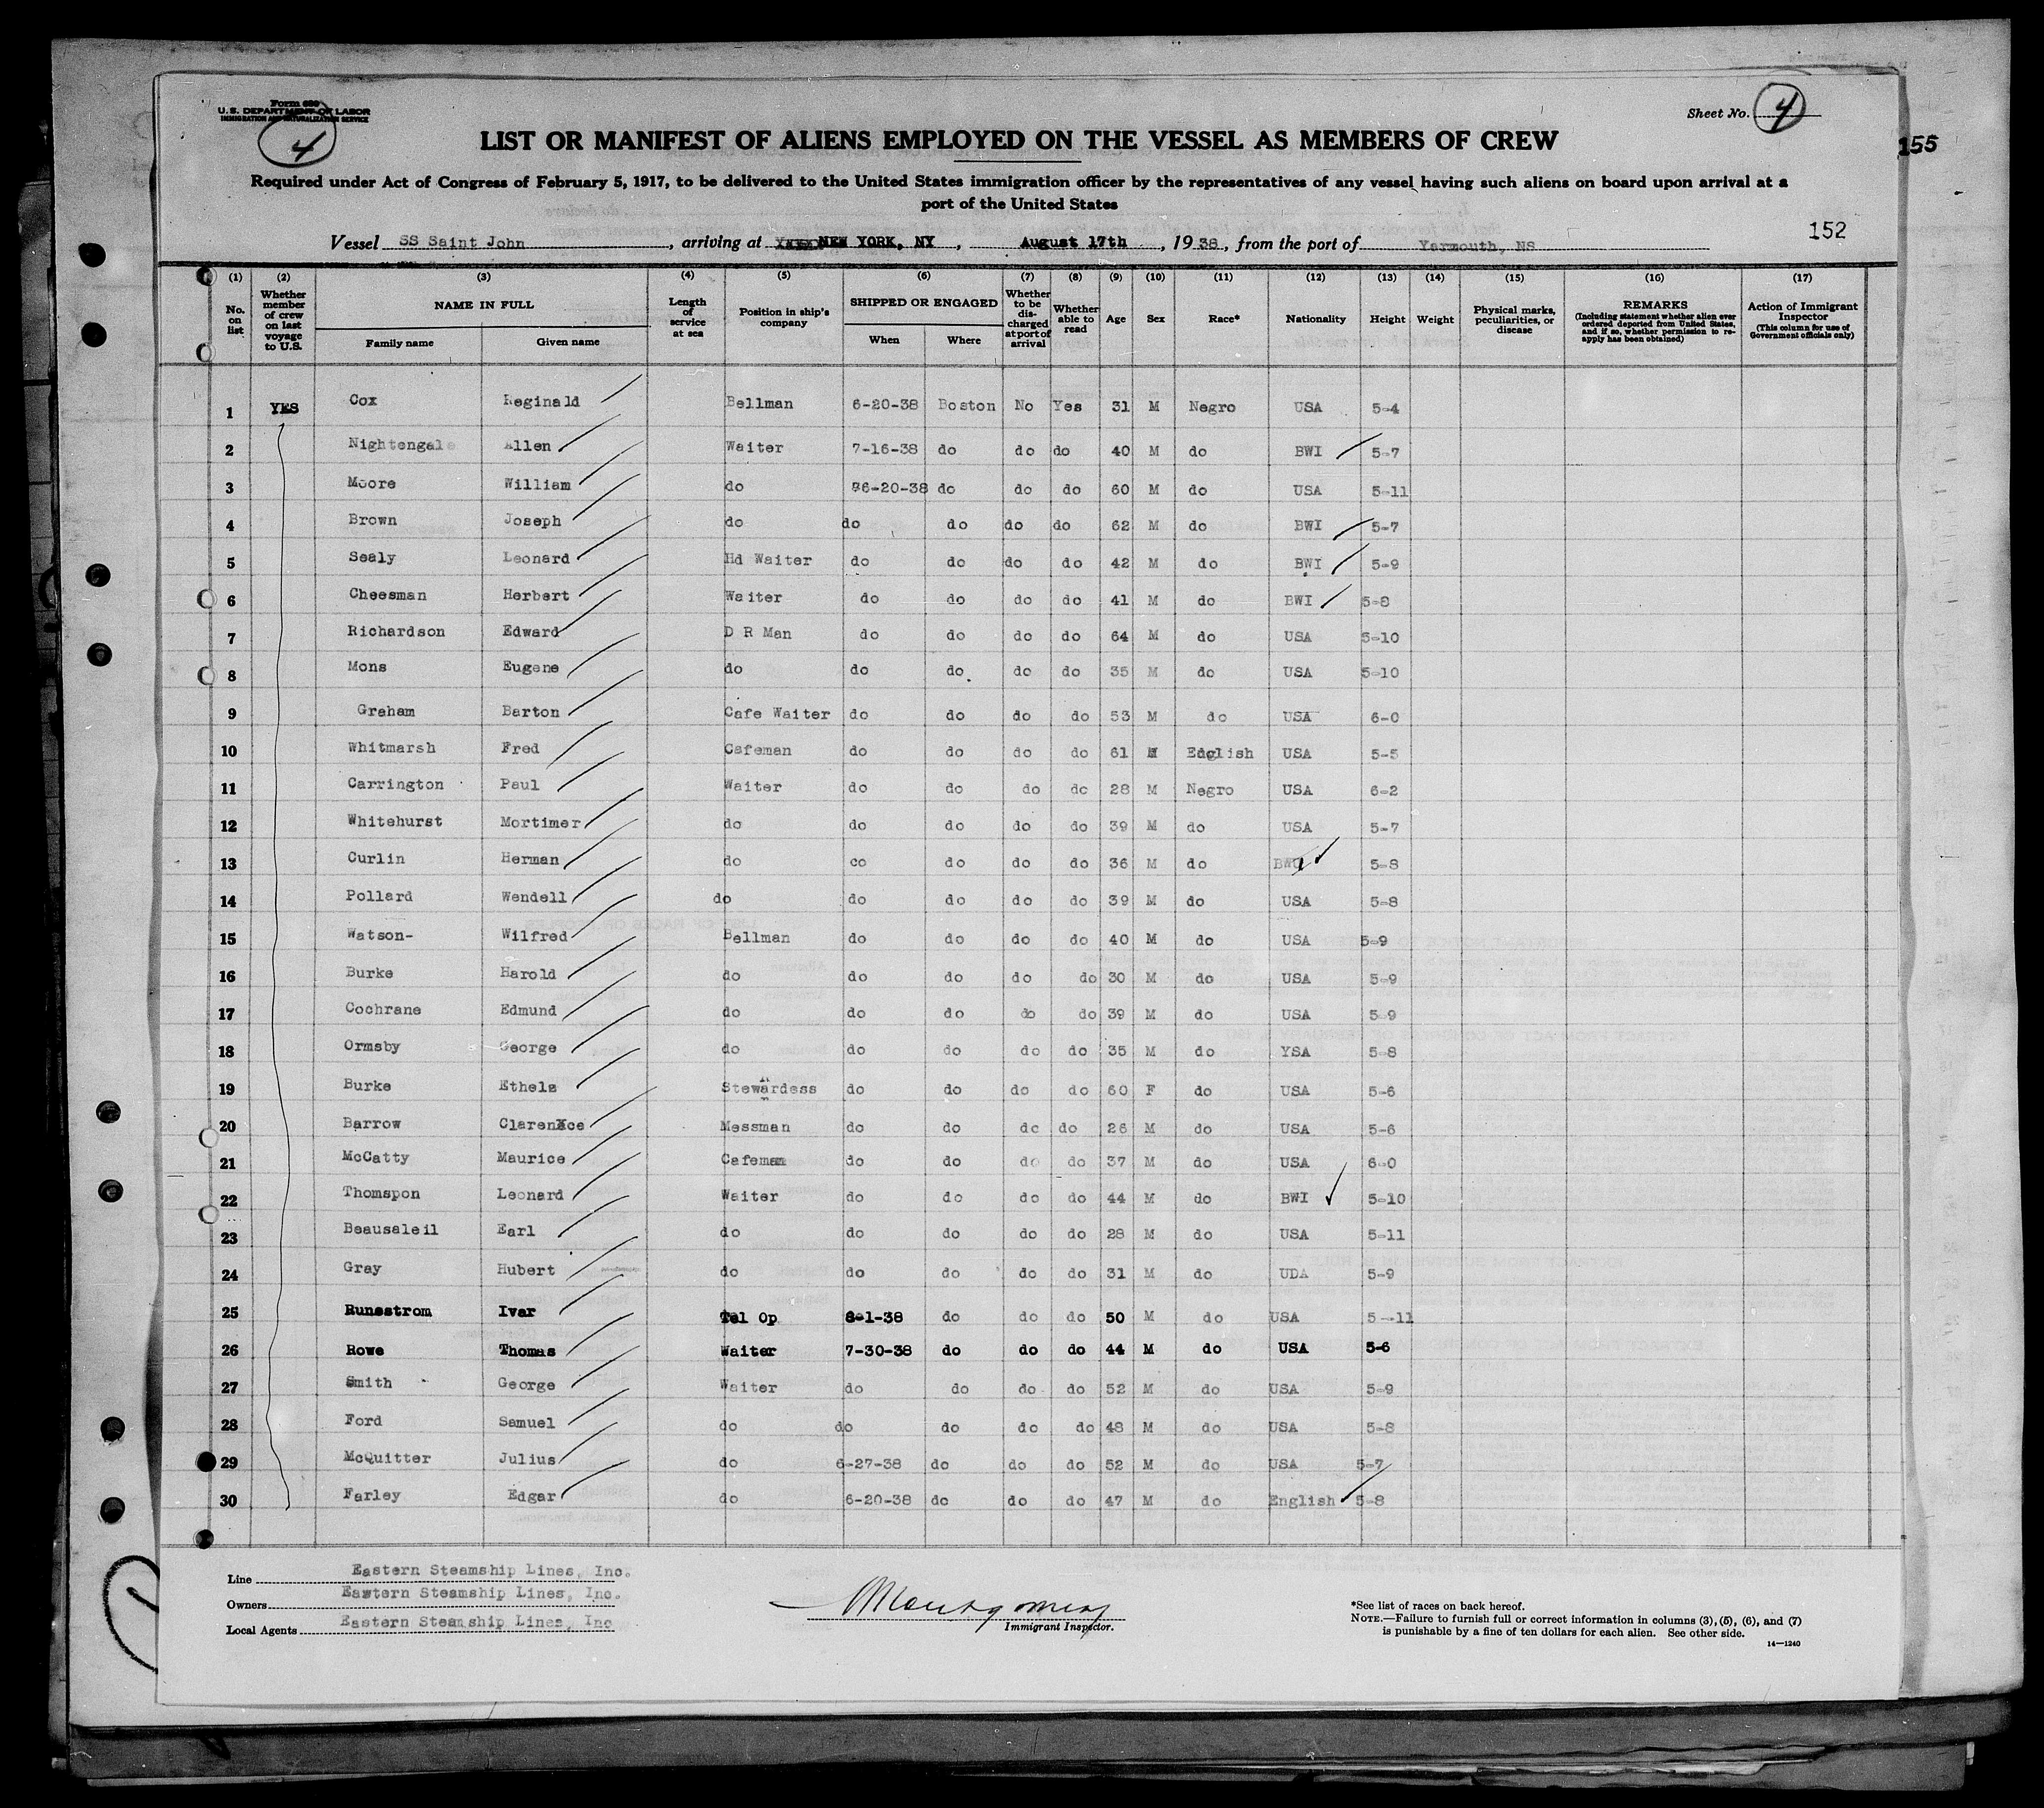 Form 689
U. S. DEPARTMENT OF LABOR
IMMIGRATION AND NATURALIZATION SERVICE
4
Sheet No. 4
155
LIST OR MANIFEST OF ALIENS EMPLOYED ON THE VESSEL AS MEMBERS OF CREW
Required under Act of Congress of February 5, 1917, to be delivered to the United States immigration officer by the representatives of any vessel having such aliens on board upon arrival at a
port of the United States
152
Vessel SS Saint John, arriving at NEW YORK, NY, August 17th, 1938, from the port of Yarmouth, NS
(1) (2) (3) (4) (5) (6) (7) (8) (9) (10) (11) (12) (13) (14) (15) (16) (17)
No. on list
Whether member of crew on last voyage to U.S.
NAME IN FULL
Family name Given name
Length of service at sea
Position in ship's company
SHIPPED OR ENGAGED
When Where
Whether to be discharged at port of arrival
Whether able to read
Age Sex Race* Nationality Height Weight
Physical marks, peculiarities, or disease
REMARKS
(Including statement whether alien ever ordered deported from United States, and if so, whether permission to re-apply has been obtained)
Action of Immigrant Inspector
(This column for use of Government officials only)
1 YES Cox Reginald Bellman 6-20-38 Boston No Yes 31 M Negro USA 5-4
2 Nightengale Allen Waiter 7-16-38 do do do 40 M do BWI 5-7
3 Moore William do 6-20-38 do do do 60 M do USA 5-11
4 Brown Joseph do do do do do 62 M do BWI 5-7
5 Sealy Leonard Hd Waiter do do do do 42 M do BWI 5-9
6 Cheesman Herbert Waiter do do do do 41 M do BWI 5-8
7 Richardson Edward D R Man do do do do 64 M do USA 5-10
8 Mons Eugene do do do do do 35 M do USA 5-10
9 Graham Barton Cafe Waiter do do do do 53 M do USA 6-0
10 Whitmarsh Fred Cafeman do do do do 61 M English USA 5-5
11 Carrington Paul Waiter do do do do 28 M Negro USA 6-2
12 Whitehurst Mortimer do do do do do 39 M do USA 5-7
13 Curlin Herman do co do do do 36 M do 5-8
14 Pollard Wendell do do do do do 39 M do USA 5-8
15 Watson- Wilfred Bellman do do do do 40 M do USA 5-9
16 Burke Harold do do do do do 30 M do USA 5-9
17 Cochrane Edmund do do do do do 39 M do USA 5-9
18 Ormsby George do do do do do 35 M do YSA 5-8
19 Burke Ethels Stewardess do do do do 60 F do USA 5-6
20 Barrow ClarenXce Messman do do do do 26 M do USA 5-6
21 McCatty Maurice Cafeman do do do do 37 M do USA 6-0
22 Thomspon Leonard Waiter do do do do 44 M do BWI 5-10
23 Beausaleil Earl do do do do do 28 M do USA 5-11
24 Gray Hubert do do do do do 31 M do UDA 5-9
25 Runestrom Ivar Tel Op 8-1-38 do do do 50 M do USA 5--11
26 Rowe Thomas Waiter 7-30-38 do do do 44 M do USA 5-6
27 Smith George Waiter do do do do 52 M do USA 5-9
28 Ford Samuel do do do do do 48 M do USA 5-8
29 McQuitter Julius do 6-27-38 do do do 52 M do USA 5-7
30 Farley Edgar do 6-20-38 do do do 47 M do English 5-8
Line Eastern Steamship Lines, Inc.
Owners Eastern Steamship Lines, Inc.
Local Agents Eastern Steamship Lines, Inc
Montgomery
Immigrant Inspector.
*See list of races on back hereof.
NOTE.—Failure to furnish full or correct information in columns (3), (5), (6), and (7)
is punishable by a fine of ten dollars for each alien. See other side.
14—1240